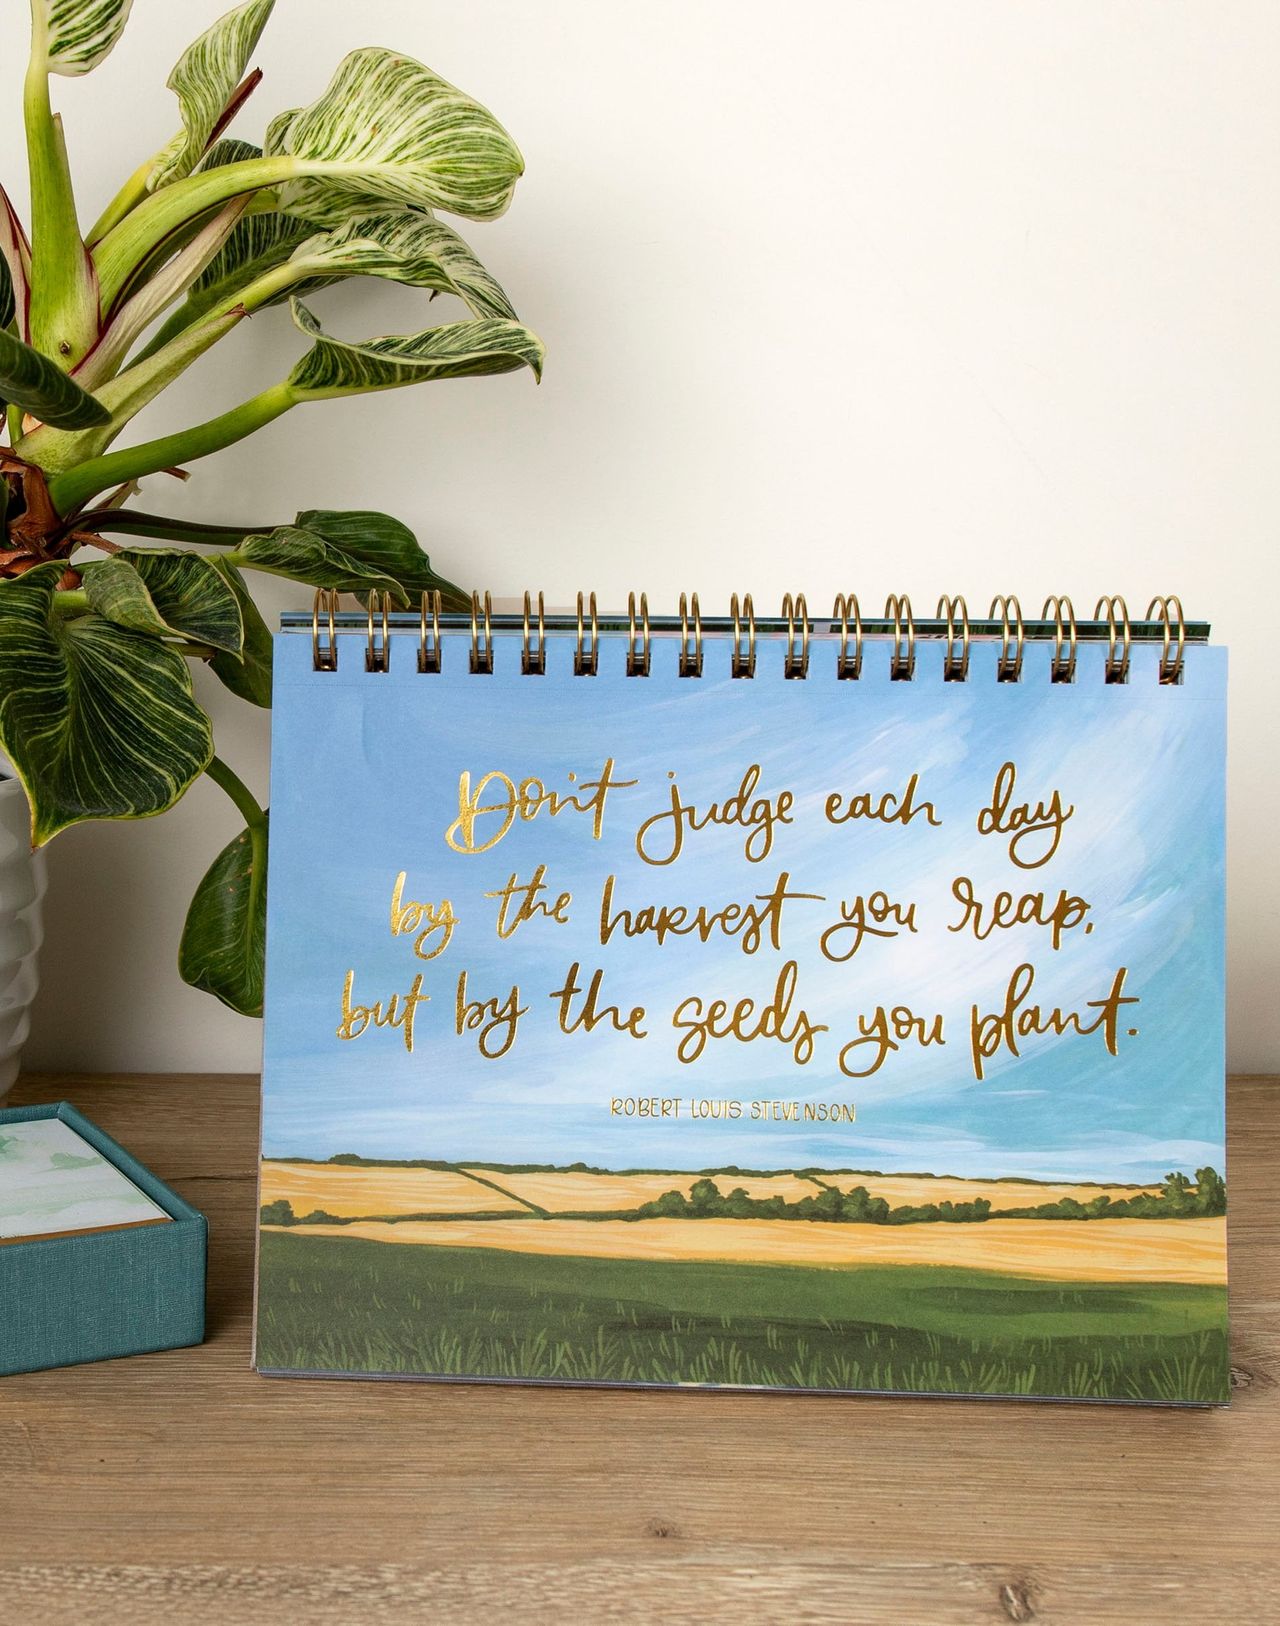 Don't judge each day
by the harvest you reap,
but by the seeds you plant.
ROBERT LOUIS STEVENSON